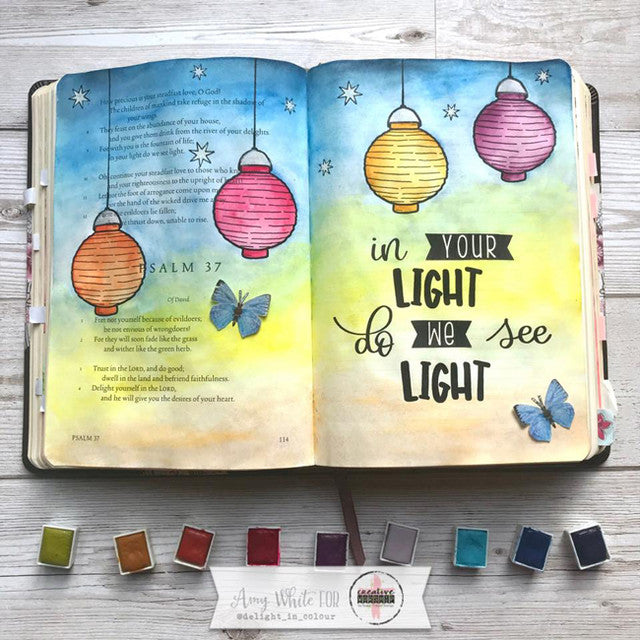 How precious is your steadfast love, O God!
The children of mankind take refuge in the shadow of
your wings.
They feast on the abundance of your house,
and you give them drink from the river of your delights.
For with you is the fountain of life;
in your light do we see light.
Oh, continue your steadfast love to those who
and your righteousness to the upright of
Let not the foot of arrogance come upon
the hand of the wicked drive me
evildoers lie fallen;
thrust down, unable to rise.
PSALM 37
Of David.
1 Fret not yourself because of evildoers;
be not envious of wrongdoers!
2 For they will soon fade like the grass
and wither like the green herb.
3 Trust in the LORD, and do good;
dwell in the land and befriend faithfulness.
4 Delight yourself in the LORD,
and he will give you the desires of your heart.
PSALM 37
114
in YOUR
LIGHT
do we see
LIGHT
Amy White FOR
@delight_in_colour
creative